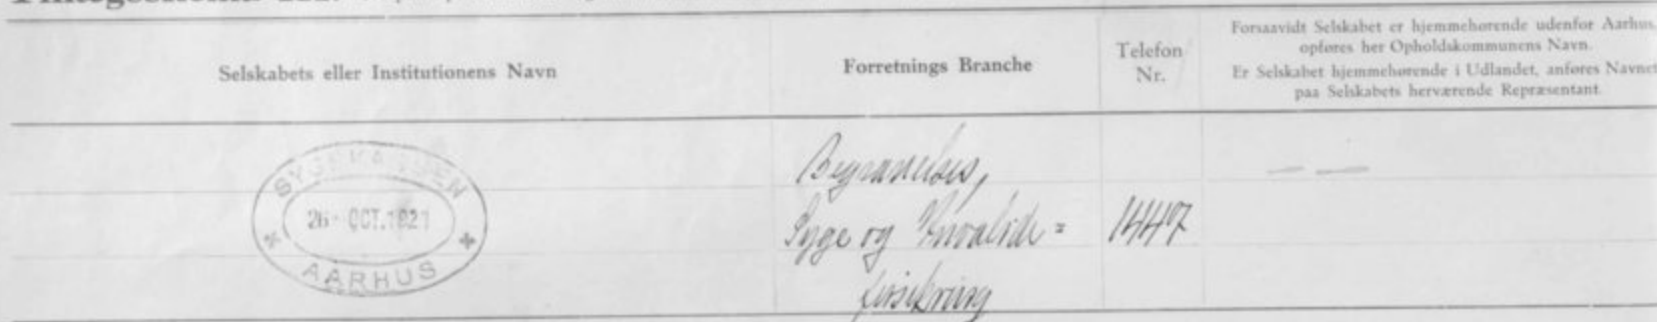 Selskabets eller Institutionens Navn
Forretnings Branche
Telefon
Nr.
Forsaavidt Selskabet er hjemmehørende udenfor Aarhus,
opføres her Opholdskommunens Navn.
Er Selskabet hjemmehørende i Udlandet, anføres Navnet
paa Selskabets herværende Repræsentant.
SYGEKASSEN
26 OCT. 1921
AARHUS
Begravelses,
Syge og Invalide =
forsikring
1447
— —